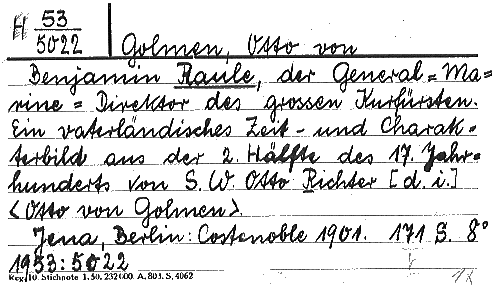 H 53
5022
Golmen, Otto von
Benjamin Raule, der General=Ma=
rine=Direktor des grossen Kurfürsten.
Ein vaterländisches Zeit- und Charak=
terbild aus der 2. Hälfte des 17. Jahr=
hunderts von S. W. Otto Richter [d. i.]
<Otto von Golmen>.
Jena, Berlin: Costenoble 1901. 171 S. 8°
1953:5022
Stichnote 1. 50. 232000. A. 803. S. 4062